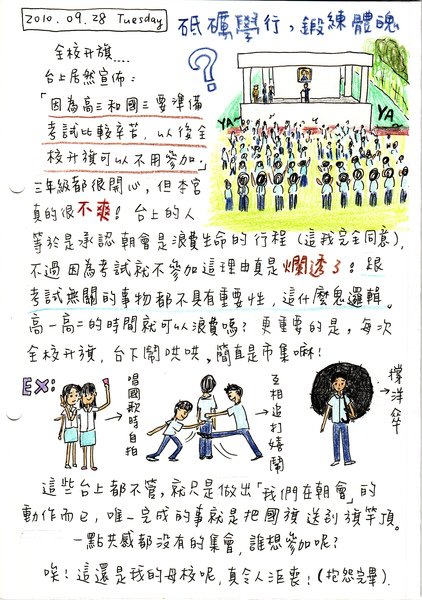 2010.09.28 Tuesday
砥礪學行,鍛練體魄
?
全校升旗....
台上居然宣佈:
「因為高三和國三要準備
考試比較辛苦,以後全
校升旗可以不用參加.」
YA~
YA~
三年級都很開心,但本宮
真的很不爽!台上的人
等於是承認朝會是浪費生命的行程(這我完全同意),
不過因為考試就不參加這理由真是爛透了!跟
考試無關的事物都不具有重要性,這什麼鬼邏輯.
高一高二的時間就可以浪費嗎?更重要的是,每次
全校升旗,台下鬧哄哄,簡直是市集嘛!
EX:
唱國歌時自拍
互相追打嬉鬧
撐洋傘
這些台上都不管,就只是做出「我們在朝會」的
動作而已,唯一完成的事就是把國旗送到旗竿頂。
一點共感都沒有的集會,誰想參加呢?
唉!這還是我的母校呢,真令人沮喪!(抱怨完畢).